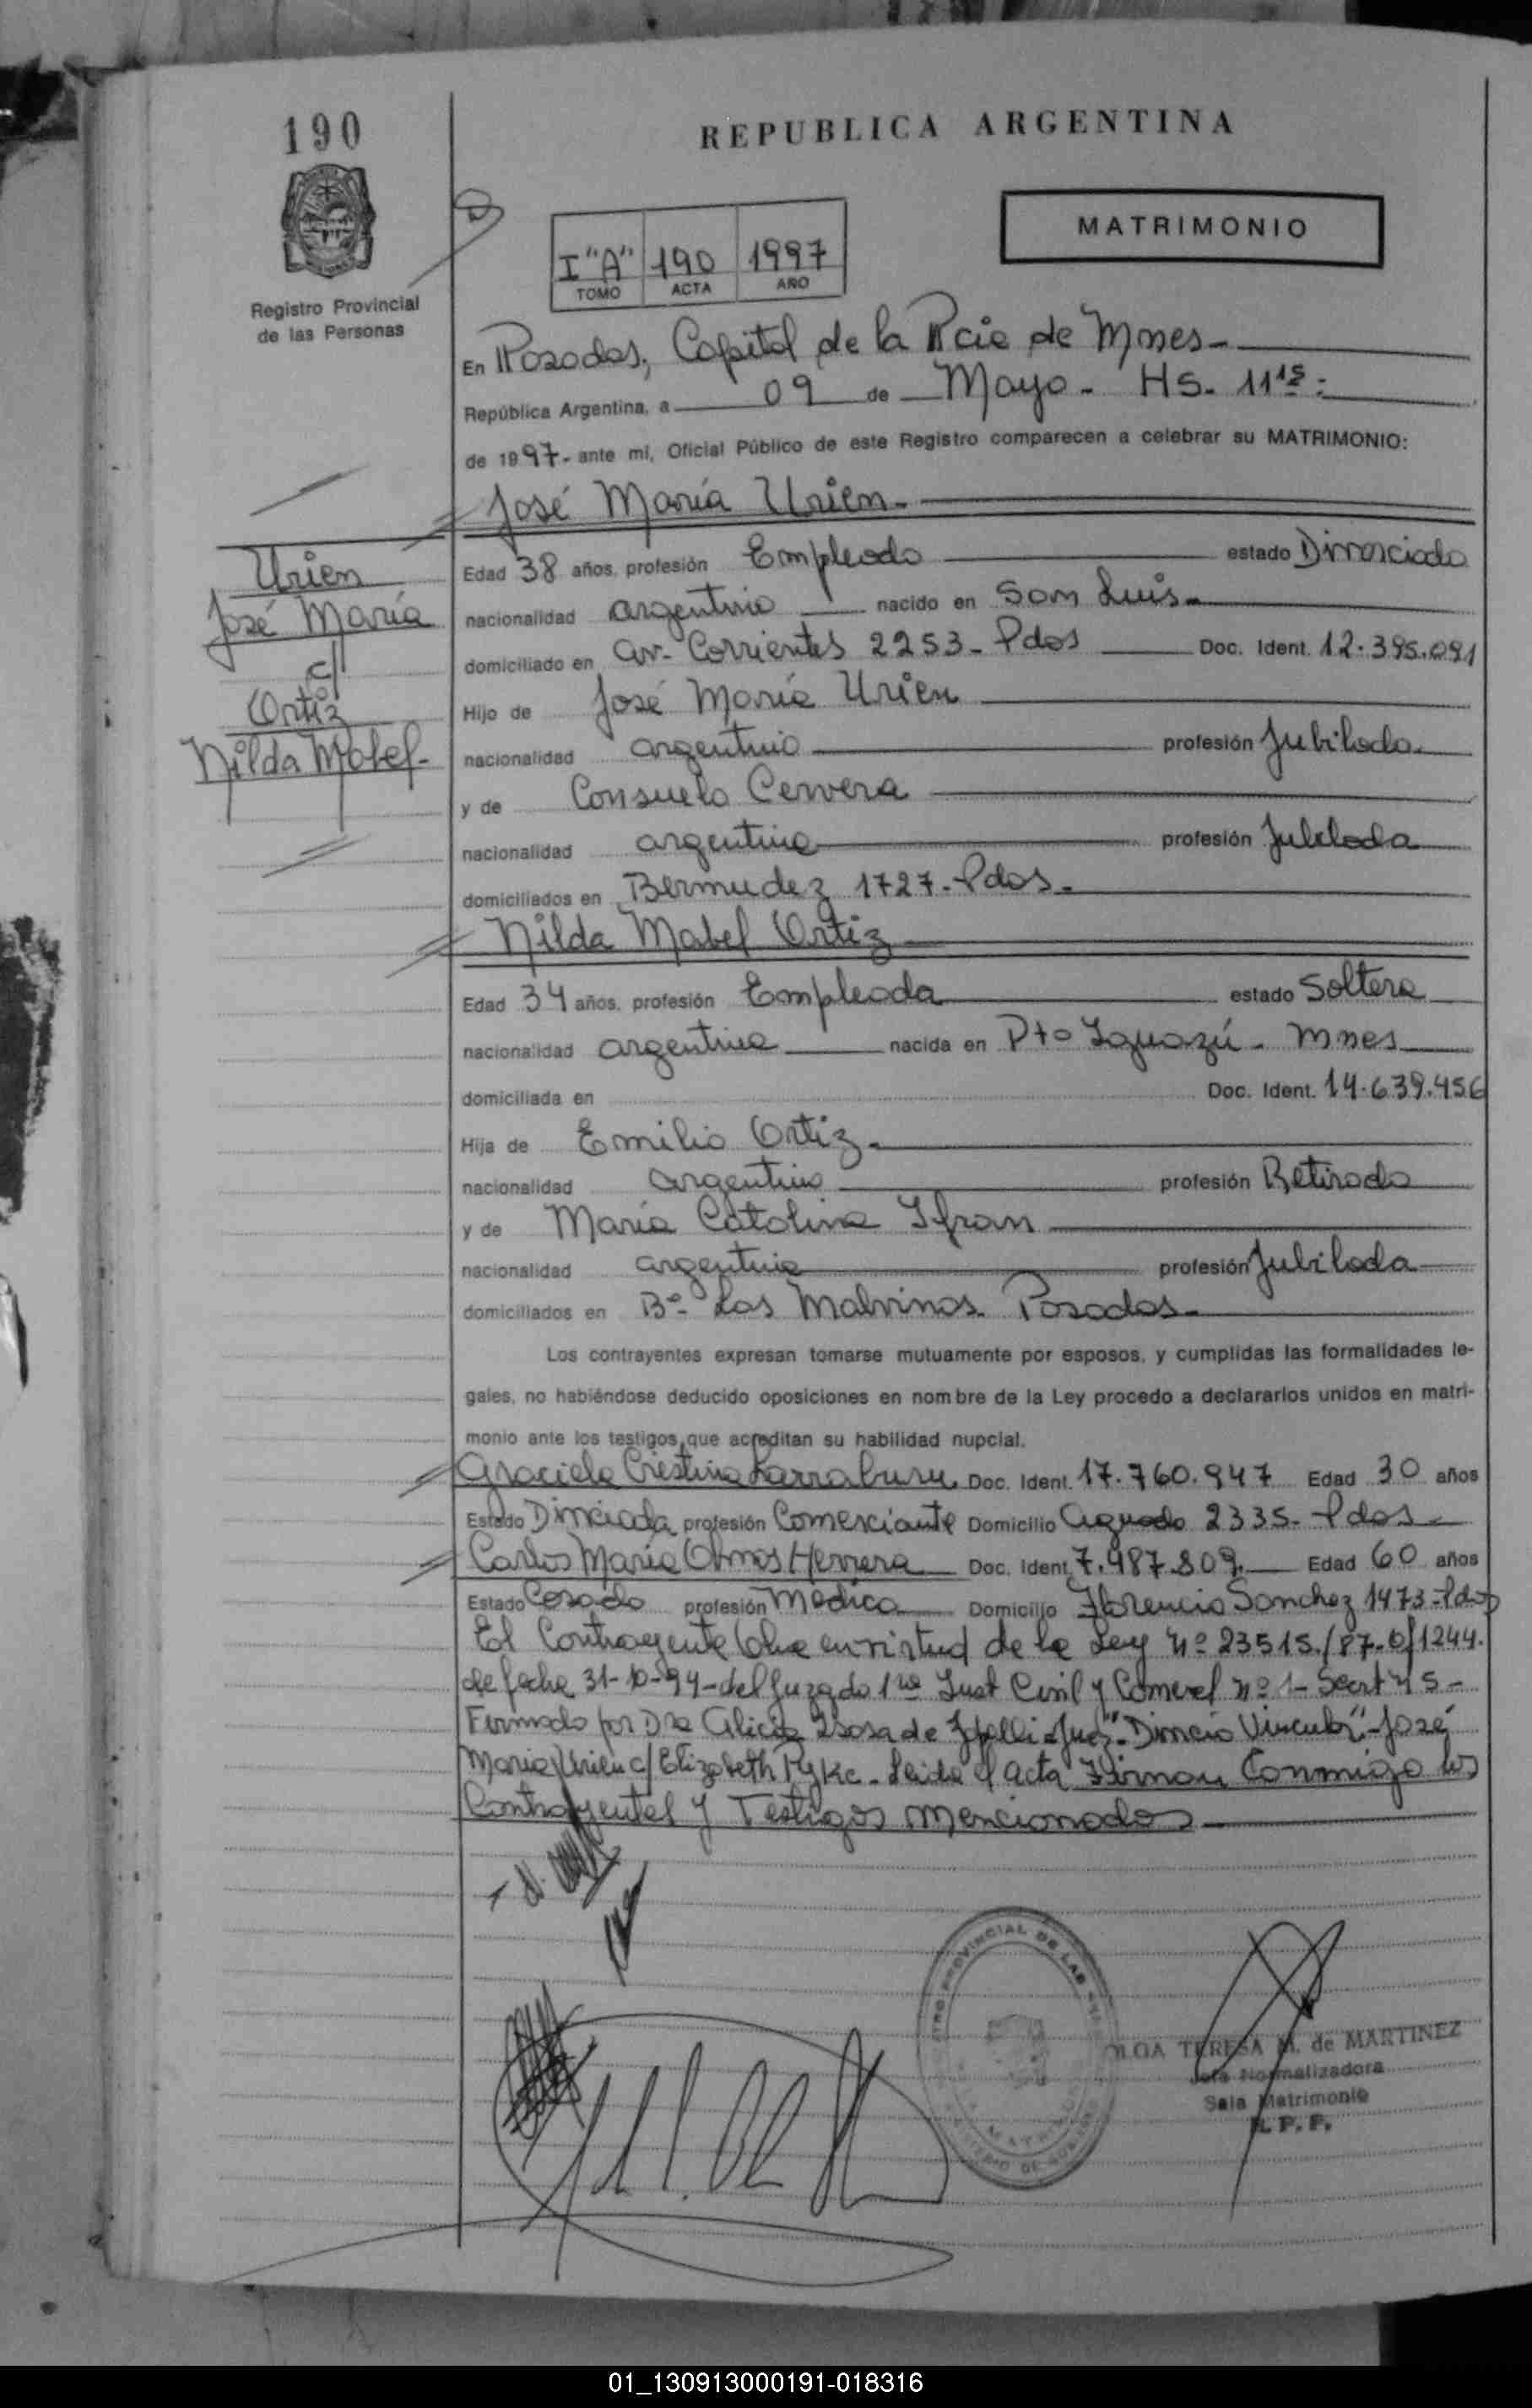 190
REPUBLICA ARGENTINA
MATRIMONIO
I "A" 190 1997
TOMO ACTA AÑO
Registro Provincial
de las Personas
En Posadas, Capital de la Pcia de Mnes-
República Argentina, a 09 de Mayo - Hs. 11 15:
de 1997- ante mí, Oficial Público de este Registro comparecen a celebrar su MATRIMONIO:
José María Urien-
Urien
José María
c/
Ortiz
Nilda Mabel-
Edad 38 años, profesión Empleado estado Divorciado
nacionalidad argentino nacido en San Luis-
domiciliado en Av- Corrientes 2253- Pdas Doc. Ident. 12.395.091
Hijo de José María Urien
nacionalidad argentino profesión Jubilado
y de Consuelo Cervera
nacionalidad argentina profesión Jubilada
domiciliados en Bermudez 1727- Pdas-
Nilda Mabel Ortiz
Edad 34 años, profesión Empleada estado Soltera
nacionalidad argentina nacida en Pto Iguazú - Mnes
domiciliada en Doc. Ident. 14.639.456
Hija de Emilio Ortiz-
nacionalidad argentino profesión Retirado
y de María Catalina Ifran
nacionalidad argentina profesión Jubilada
domiciliados en Bº- Las Malvinas- Posadas-
Los contrayentes expresan tomarse mutuamente por esposos, y cumplidas las formalidades le-
gales, no habiéndose deducido oposiciones en nombre de la Ley procedo a declararlos unidos en matri-
monio ante los testigos que acreditan su habilidad nupcial.
Graciela Cristina Larraburu Doc. Ident. 17.760.947 Edad 30 años
Estado profesión Comerciante Domicilio Aguado 2335- Pdas-
Carlos María Olmos Herrera Doc. Ident. 7.987.809 Edad 60 años
Estado Casado profesión Médico Domicilio Florencio Sanchez 1473- Pdas
El Contrayente en virtud de la Ley nº 23515/87- 1244.
de fecha 31-10-94- del Juzgado 1ra Inst Civil y nº 1- 5-
Firmado por Dra Alicia de José
María Urien c/ Elizabeth Leida el acta Firman Conmigo los
Contrayentes y Testigos mencionados
OLGA TERESA M. de MARTINEZ
Jefa Normalizadora
Sala Matrimonio
R. P. P.
01_130913000191-018316